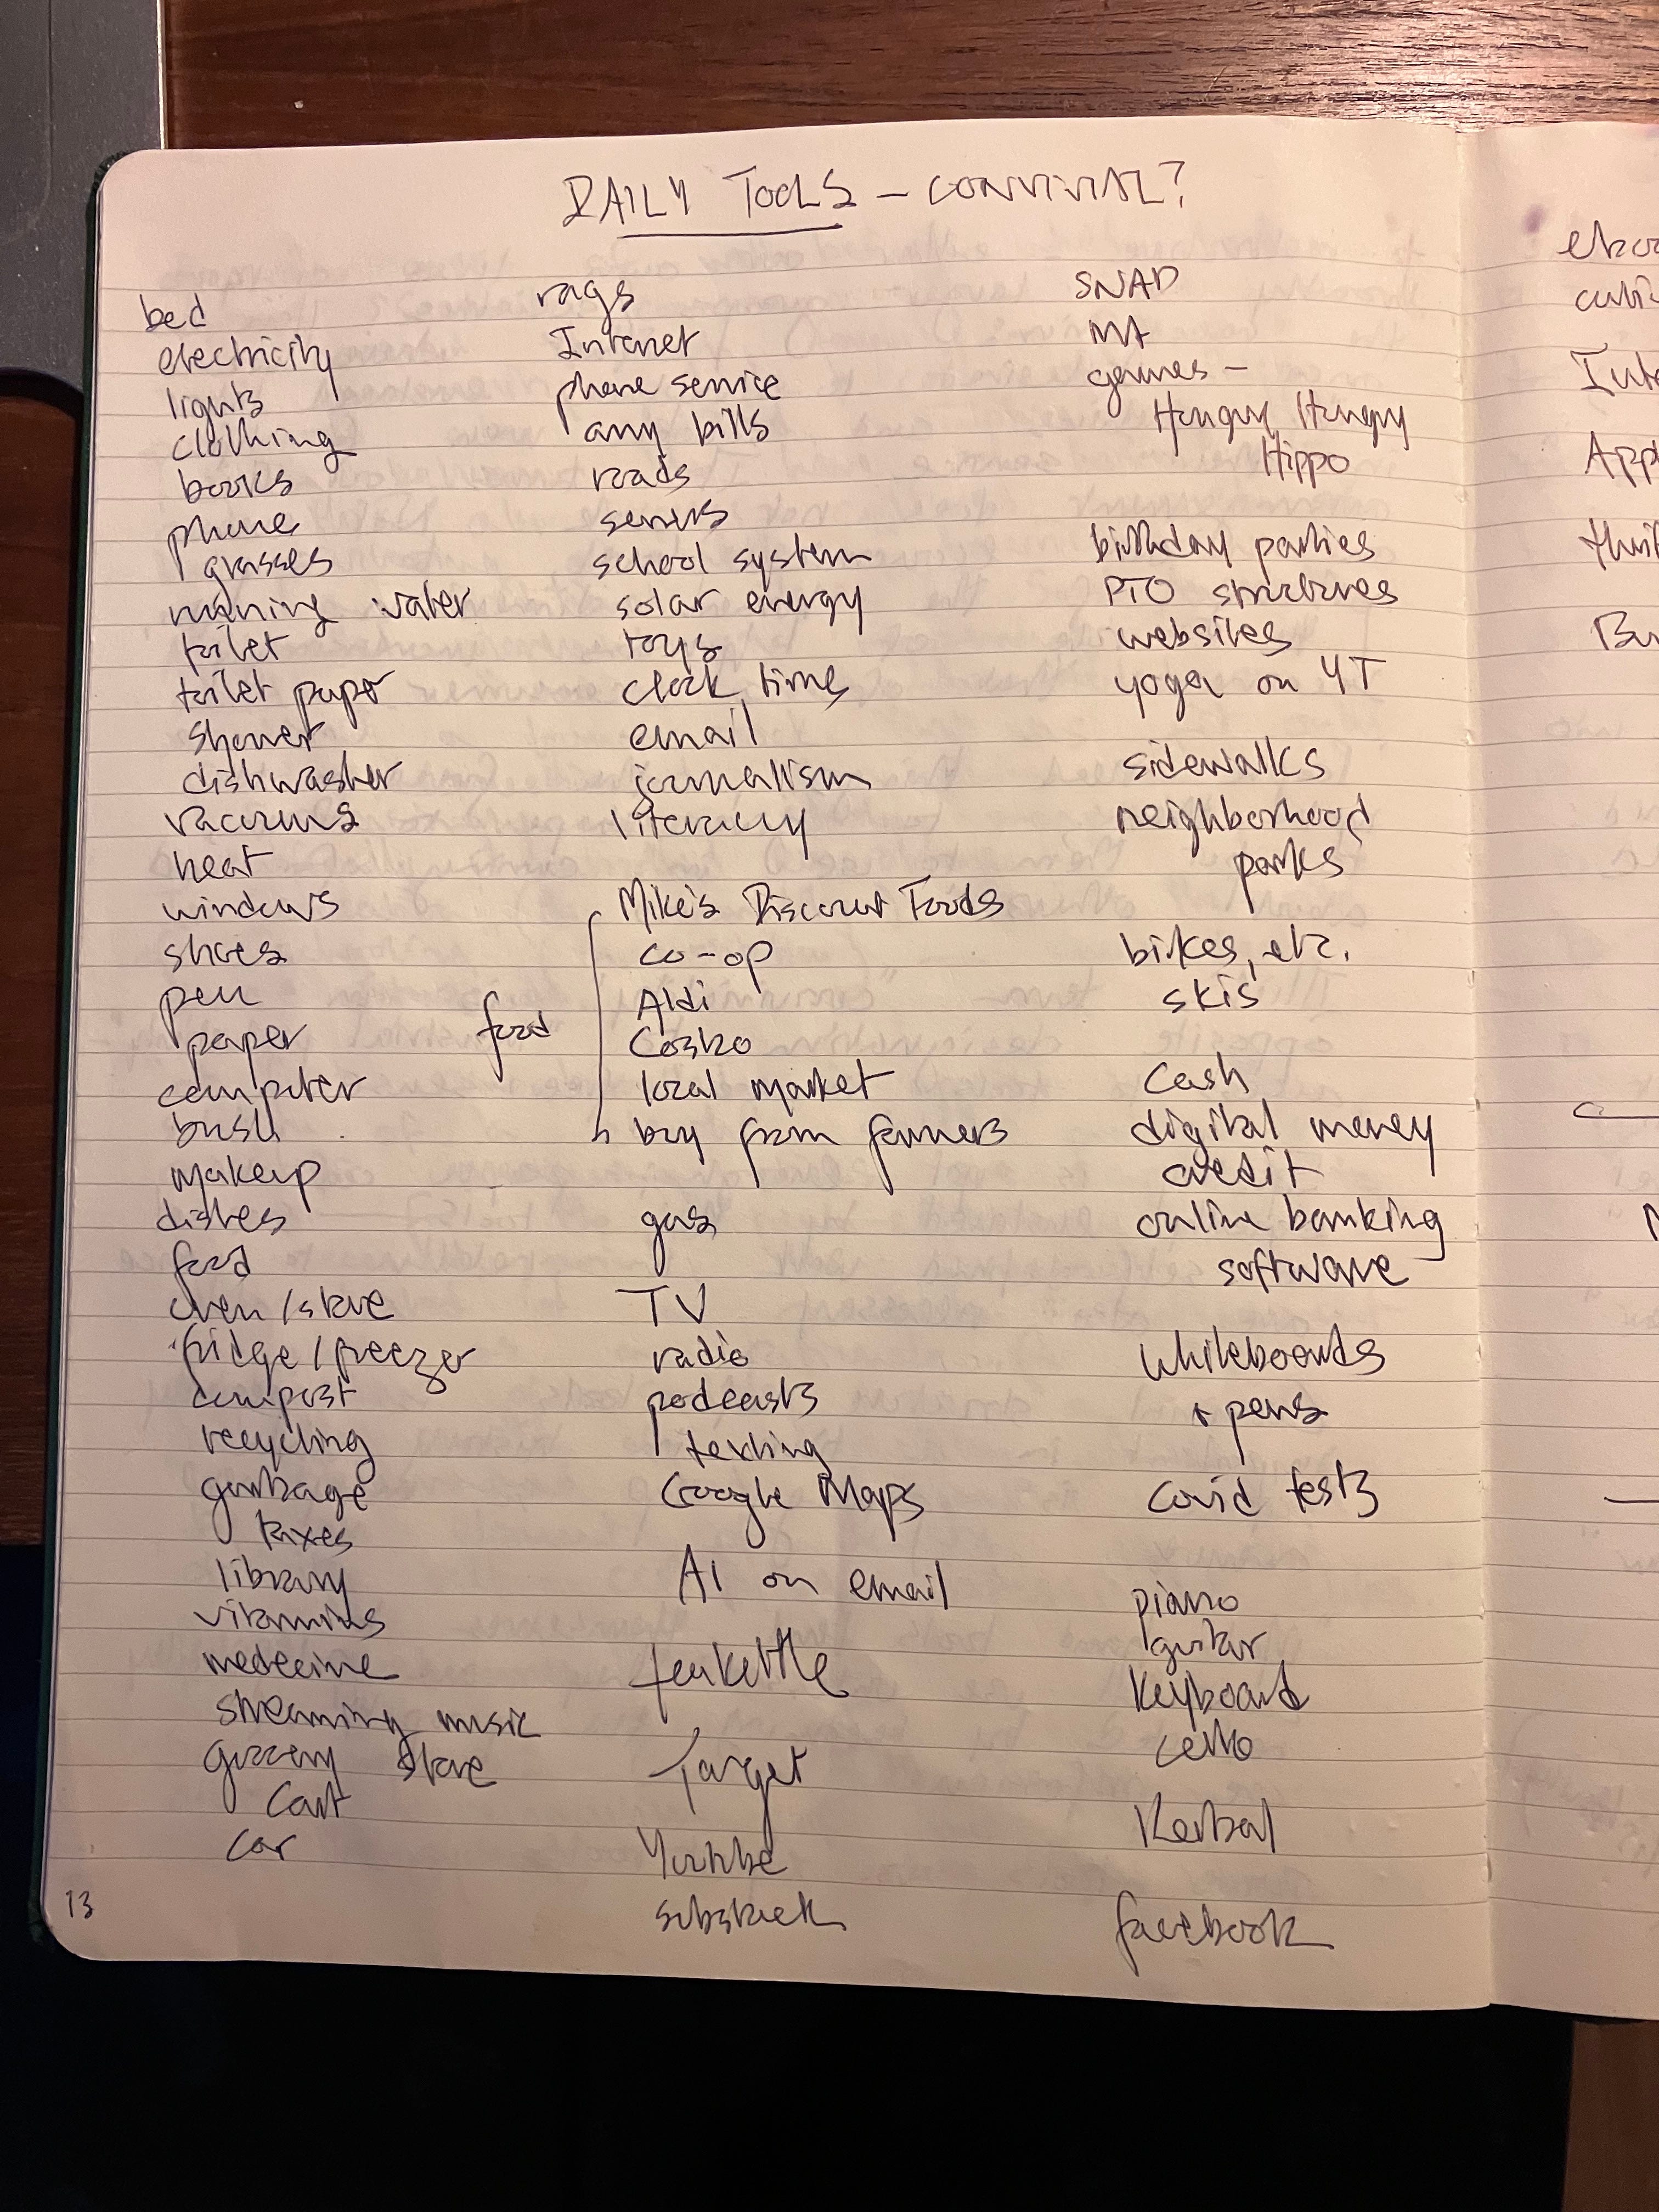 DAILY TOOLS – CONVIVIAL?
bed
electricity
lights
clothing
books
phone
glasses
running water
toilet
toilet paper
shower
dishwasher
vacuums
heat
windows
shoes
pen
paper
computer
brush
makeup
dishes
food
oven/stove
fridge/freezer
compost
recycling
garbage
taxes
library
vitamins
medecine
streaming music
grocery store
cart
car
13
rags
Internet
phone service
any bills
roads
sewers
school system
solar energy
toys
clock time
email
journalism
literacy
food
Mike's Discount Foods
co-op
Aldi
Costco
local market
buy from farmers
gas
TV
radio
podcasts
texting
Google Maps
AI on email
teakettle
Target
Youtube
substack
SNAP
MA
games –
Hungry Hungry
Hippo
birthday parties
PTO structures
websites
yoga on YT
sidewalks
neighborhood
parks
bikes, etc.
skis
cash
digital money
credit
online banking
software
whiteboards
+ pens
covid tests
piano
guitar
keyboard
cello
Kerbal
facebook